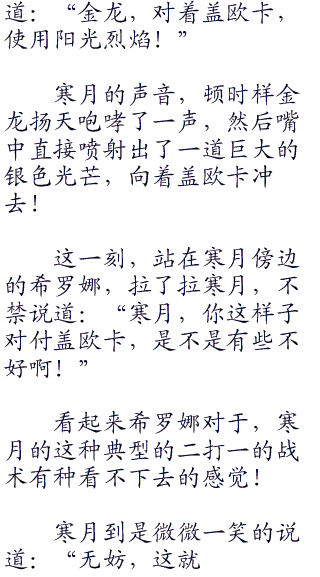 道：“金龙，对着盖欧卡，
使用阳光烈焰！”
寒月的声音，顿时样金
龙扬天咆哮了一声，然后嘴
中直接喷射出了一道巨大的
银色光芒，向着盖欧卡冲
去！
这一刻，站在寒月傍边
的希罗娜，拉了拉寒月，不
禁说道：“寒月，你这样子
对付盖欧卡，是不是有些不
好啊！”
看起来希罗娜对于，寒
月的这种典型的二打一的战
术有种看不下去的感觉！
寒月到是微微一笑的说
道：“无妨，这就